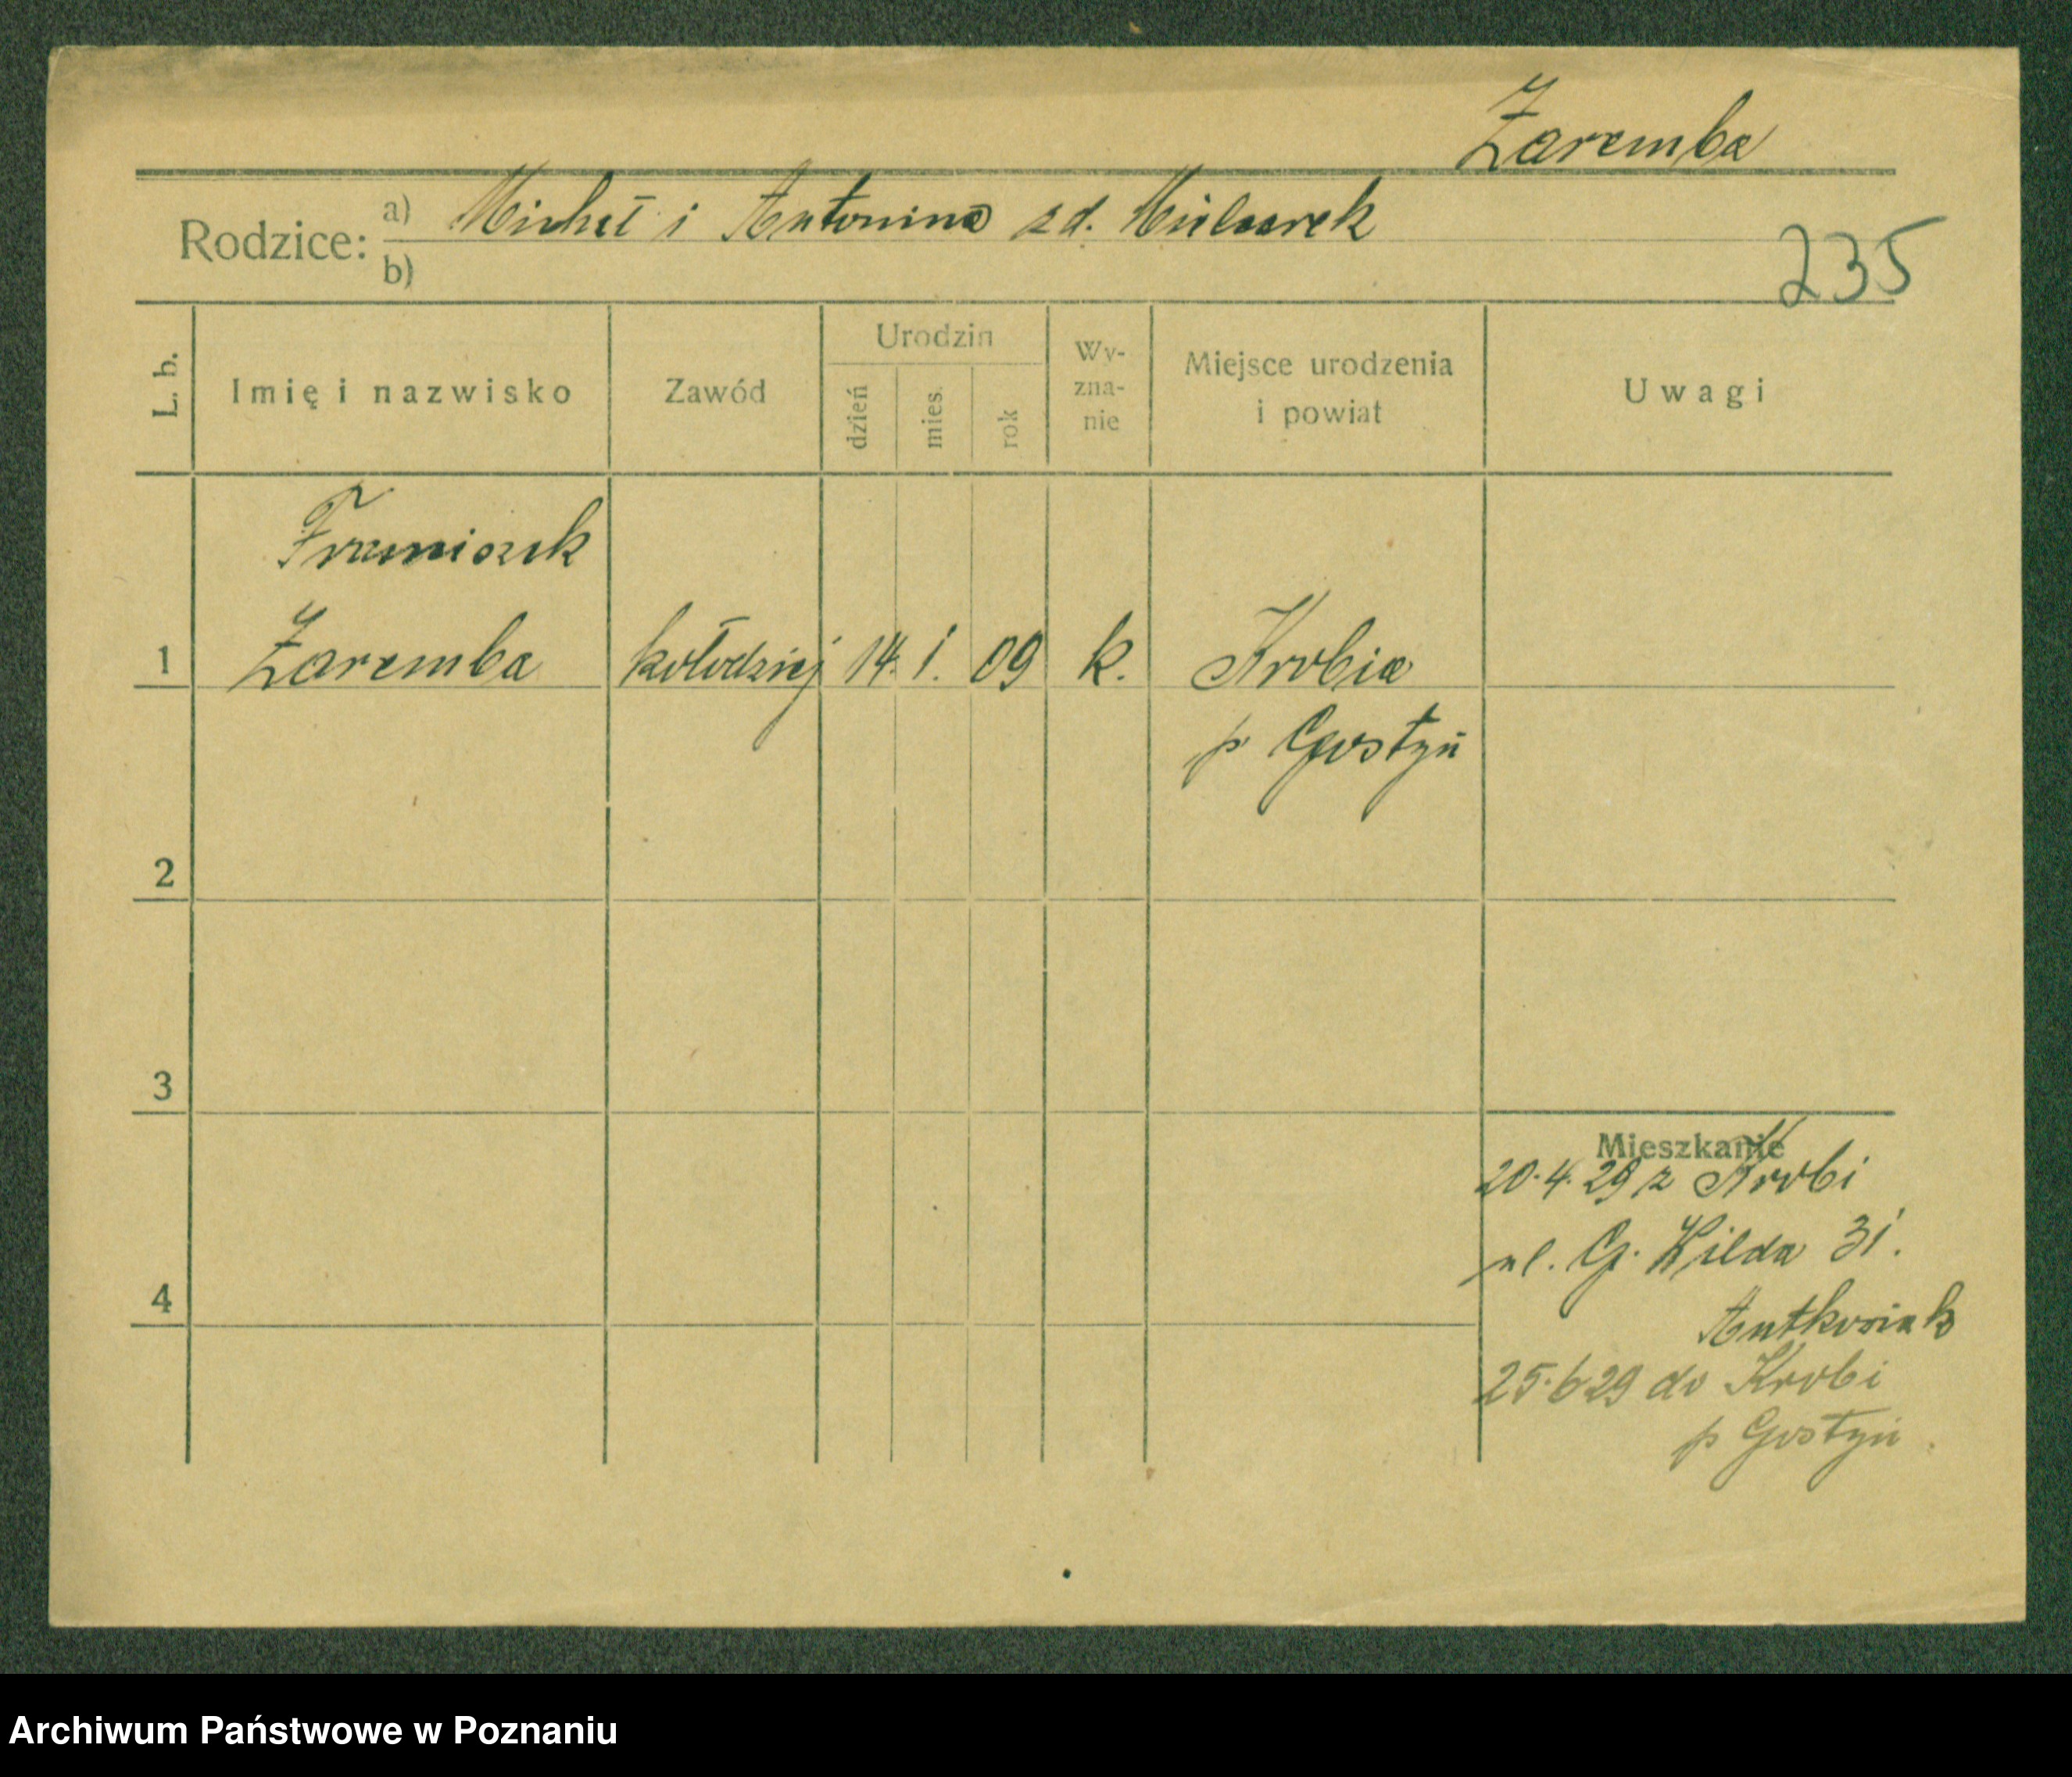 Zaremba
Rodzice: a) Michał i Antonina z d. Mielcarek
b)
235
L. b.
Imię i nazwisko
Zawód
Urodzin
dzień
mies.
rok
Wy-
zna-
nie
Miejsce urodzenia
i powiat
Uwagi
Franciszek
1 Zaremba kołodziej 14. 1. 09 k. Krobia
p Gostyń
2
3
4
Mieszkanie
20.4.29 z Krobi
ul. G. Wilda 31.
Antkowiak
25.6 29 do Krobi
p Gostyń.
Archiwum Państwowe w Poznaniu